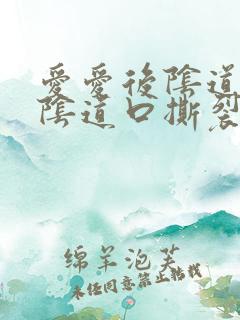 愛愛後陰道
陰道口撕裂
绵羊泡芙
未经同意禁止转载